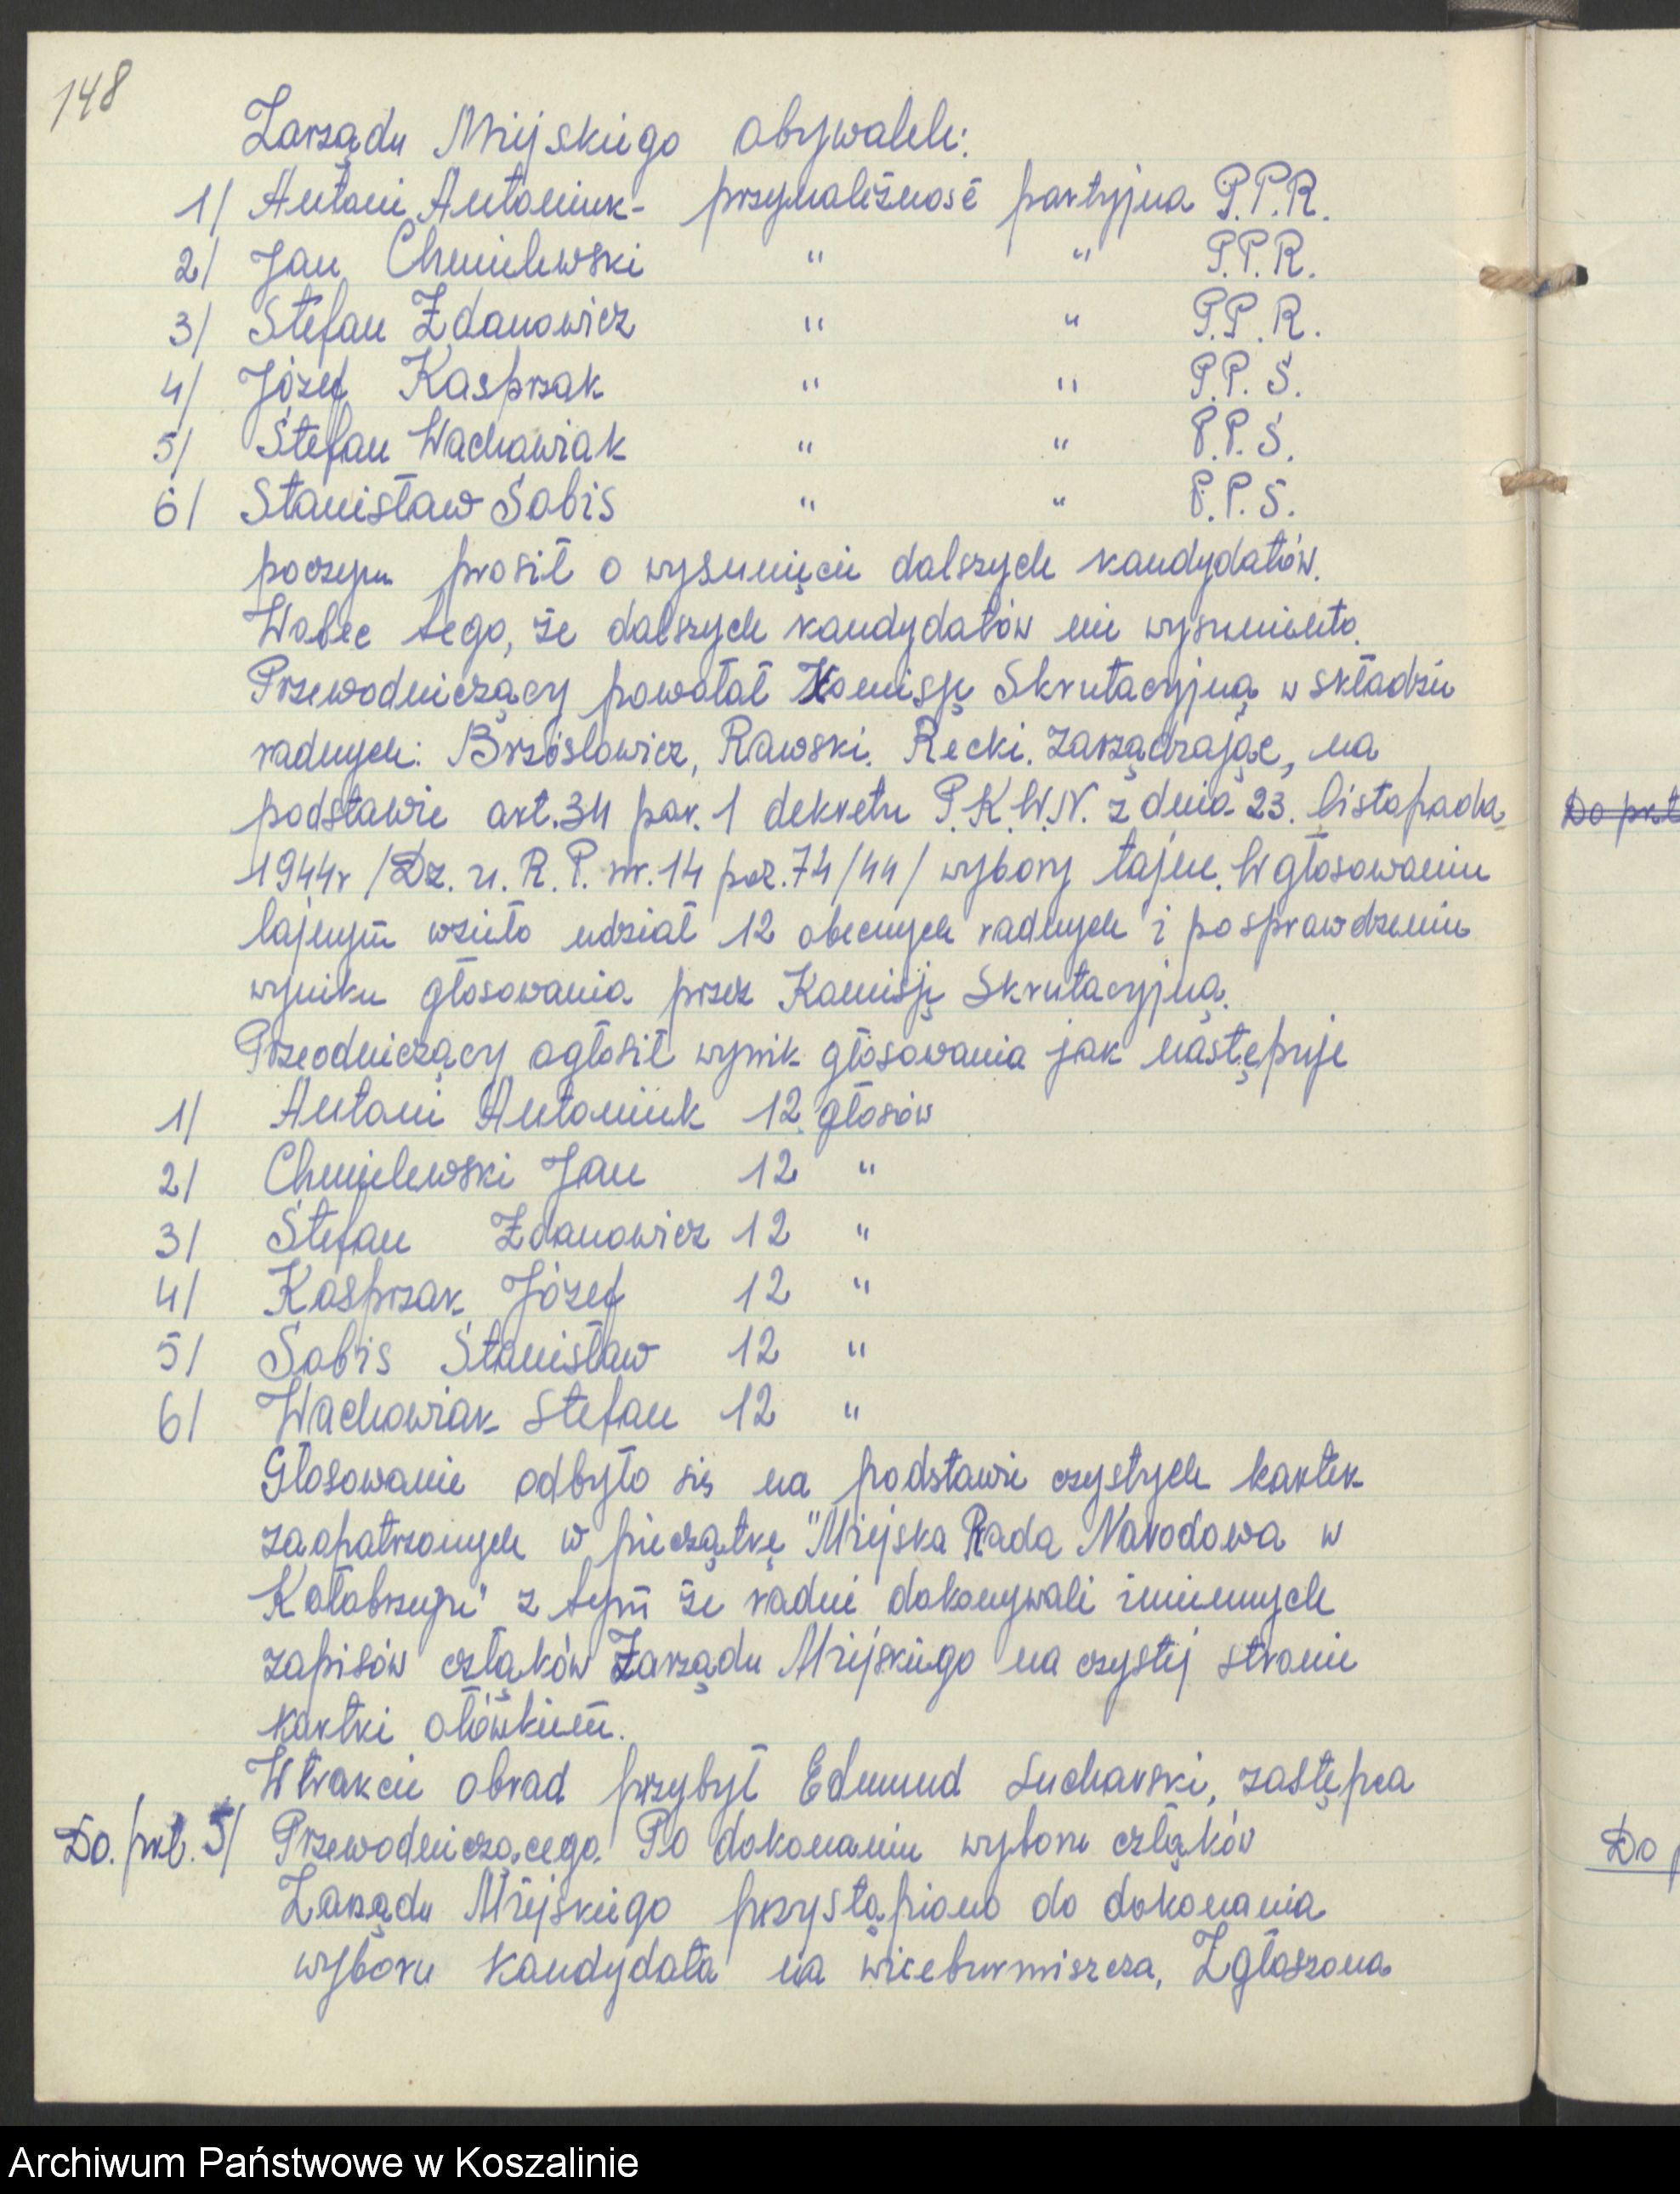 148
Zarządu Miejskiego obywatele:
1/ Antoni Antoniuk - przynależność partyjna P.P.R.
2/ Jan Chmielewski " " P.P.R.
3/ Stefan Zdanowicz " " P.P.R.
4/ Józef Kasprzak " " P.P.S.
5/ Stefan Wachowiak " " P.P.S.
6/ Stanisław Sobis " " P.P.S.
poczym prosił o wysunięcie dalszych kandydatów.
Wobec tego, że dalszych kandydatów nie wysunieńto.
Przewodniczący powołał Komisję Skrutacyjną w składzie
radnych: Brzósłowicz, Rawski. Recki. zarządzając, na
podstawie art. 34 par. 1 dekretu P.K.W.N. z dnia 23. listopada
1944r /Dz. u. R. P. nr. 14 poz. 74/44/ wybory tajne. W głosowaniu
tajnym wzieło udział 12 obecnych radnych i po sprawdzeniu
wyniku głosowania przez Komisję Skrutacyjną.
Przeodniczący ogłosił wynik głosowania jak następuje
1/ Antoni Antoniuk 12 głosów
2/ Chmielewski Jan 12 "
3/ Stefan Zdanowicz 12 "
4/ Kasprzak Józef 12 "
5/ Sobis Stanisław 12 "
6/ Wachowiak Stefan 12 "
Głosowanie odbyło się na podstawie czystych kartek
zaopatrzonych w pieczątkę "Miejska Rada Narodowa w
Kołobrzegu" z tym że radni dokonywali imiennych
zapisów człąków Zarządu Miejskiego na czystej stronie
kartki ołówkiem.
W trakcie obrad przybył Edmund Sucharski, zastępca
Do. pkt. 5/ Przewodniczącego. Po dokonaniu wyboru człąków
Zarządu Miejskiego przystąpiono do dokonania
wyboru kandydata na wiceburmiszcza, Zgłoszona
Do pkt
Do p
Archiwum Państwowe w Koszalinie